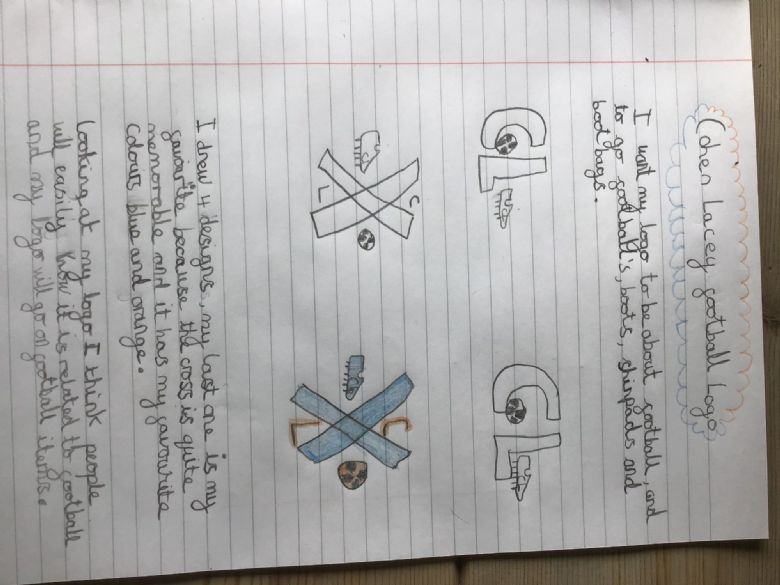 Cohen Lacey football Logo
I want my logo to be about football, and
to go football's, boots, shinpads and
boot bags.
CL
CL
C
L
C
L
I drew 4 designs, my last one is my
favourite because the cross is quite
memorable and it has my favourite
colours blue and orange.
Looking at my logo I think people
will easily know it is related to football
and my logo will go on football items.